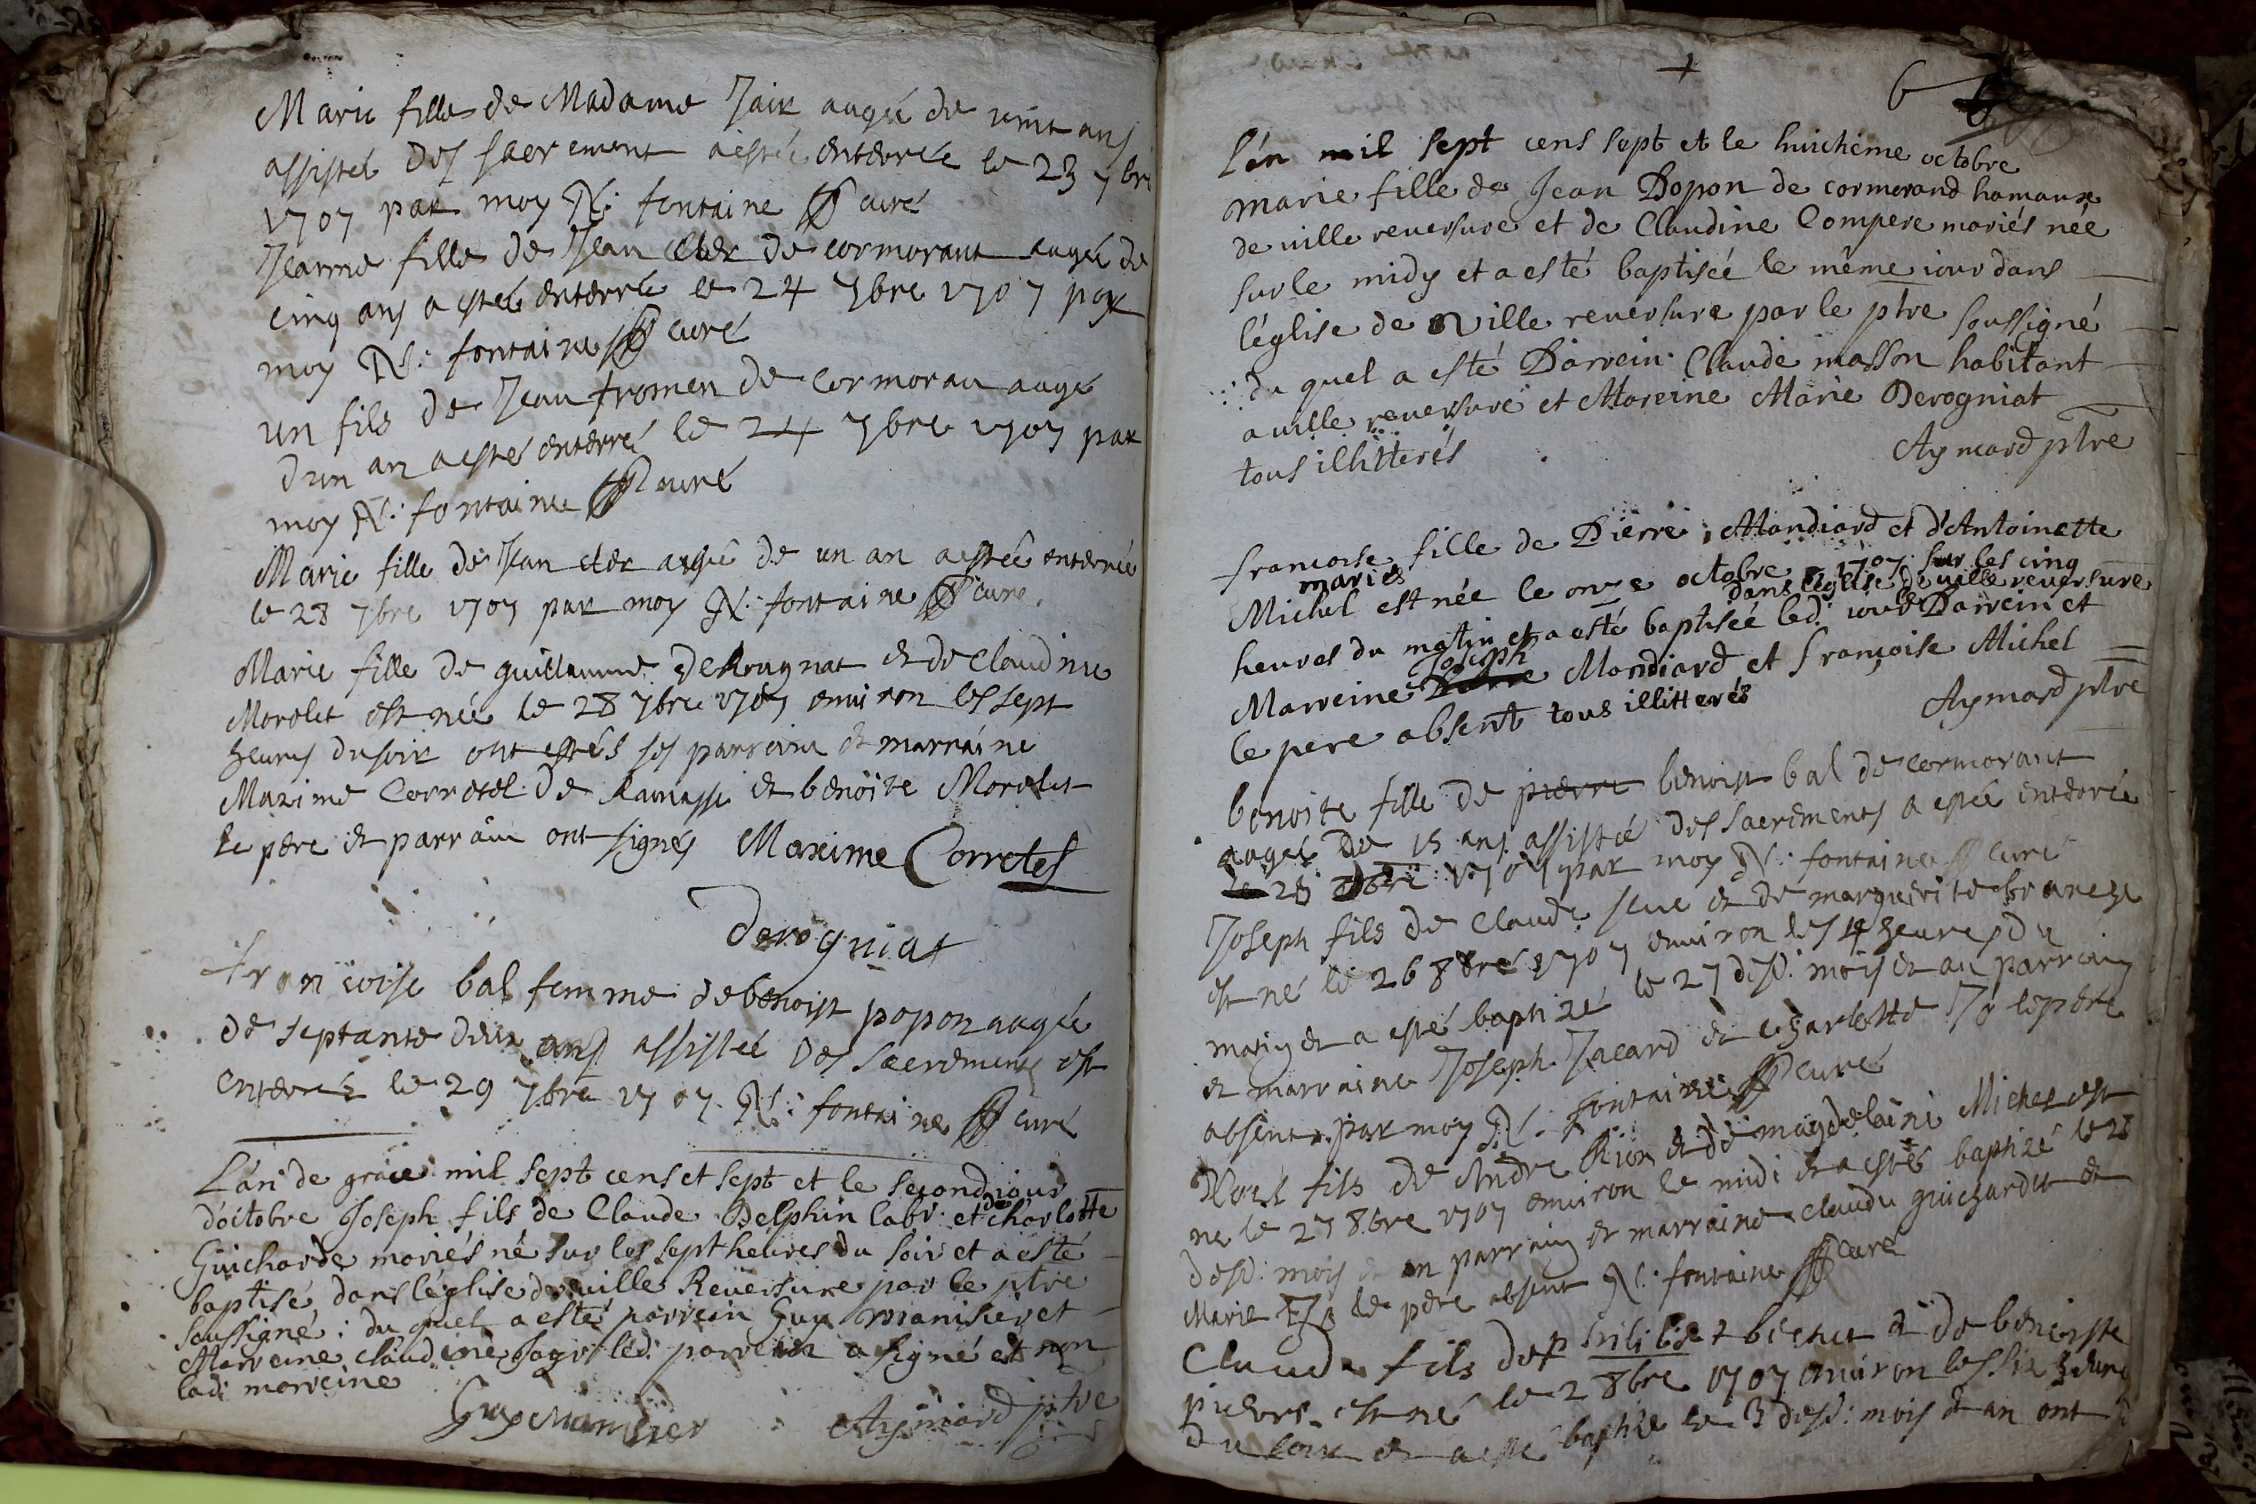 Marie fille de Madame Jair augée de vint ans
assistée des sacrement a estée enterrée le 23 7bre
1707 par moy N: fontaine curé
Jeanne fille de Jean cler de cormorant augée de
cinq ans a estée enterrée le 24 7bre 1707 par
moy N: fontaine curé
un fils de Jean fromen de cormoran augé
dun an a esté enterré le 24 7bre 1707 par
moy N: fontaine curé
Marie fille de Jean cler augée de un an a estée enterrée
le 28 7bre 1707 par moy N: fontaine curé
Marie fille de guillaume deRougnat et de Claudine
Morelet est née le 28 7bre 1707 environ les sept
heures du soir ont estés ses parrain et marraine
Maxime Corretel de Ramasse et benoite Morelet
le pere et parrain ont signés Maxime Corretel
derogniat
francoise bal femme de benoist popon augée
de septante deux ans assistée des sacrements est
enterrée le 29 7bre 1707. N: fontaine curé
L'an de grace mil sept cens et sept et le second jour
d'octobre Joseph fils de Claude Delphin labr. et de charlotte
Guicharde mariés né sur les sept heures du soir et a esté
baptisé dans l'église de ville Reversure par le ptre
soussigné: du quel a esté parrein Guy manisier et
Marreine claudine led: parrein a signé et non
lad: marreine
Guy manisier Aymard ptre
+ 6
l'an mil sept cens sept et le huichième octobre
marie fille de Jean Popon de cormorand hamaux
de ville reversure et de Claudine Compere mariés née
sur le midy et a esté baptisée le même iour dans
l'église de Ville reversure par le ptre soussigné
du quel a esté Parrein Claude masson habitant
a ville reversure et Marreine Marie Derogniat
tous illitterés Aymard ptre
francoise fille de Pierre Mandiard et d'Antoinette
mariés
Michel est née le onze octobre 1707 sur les cinq
dans l'eglise de ville reversure
heures du matin et a esté baptisée led. iour Parrein et
Joseph
Marreine Pierre Mandiard et françoise Michel
le pere absent tous illitterés Aymard ptre
benoite fille de pierre benoist bal de cormorant
augée de 15 ans assistée des sacrements a estée enterrée
le 25 8bre 1707 par moy N: fontaine curé
Joseph fils de Claude seve et de marguerite
est né le 26 8bre 1707 environ les 4 heures du
matin et a esté baptizé le 27 desd: mois et an parrain
et marraine Joseph Jacard et charlotte Jo le pere
absent par moy N: fontaine curé
Noel fils de Andre Rion et de magdelaine Michel est
ne le 27 8bre 1707 environ le midi et a estés baptizé le 28
desd: mois et an parrain et marraine claude guichardet et
Marie le pere absent N: fontaine curé
Claude fils de philibert et de benoiste
pieori est né le 2 8bre 1707 environ les six heures
du soir et a esté baptizé le 3 desd: mois et an ont